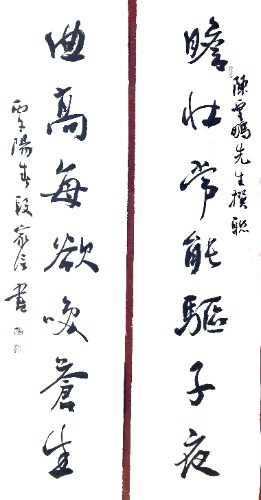 陳雲鵬先生撰聯
膽壯常能驅子夜
曲高每欲喚蒼生
陽春段家信書